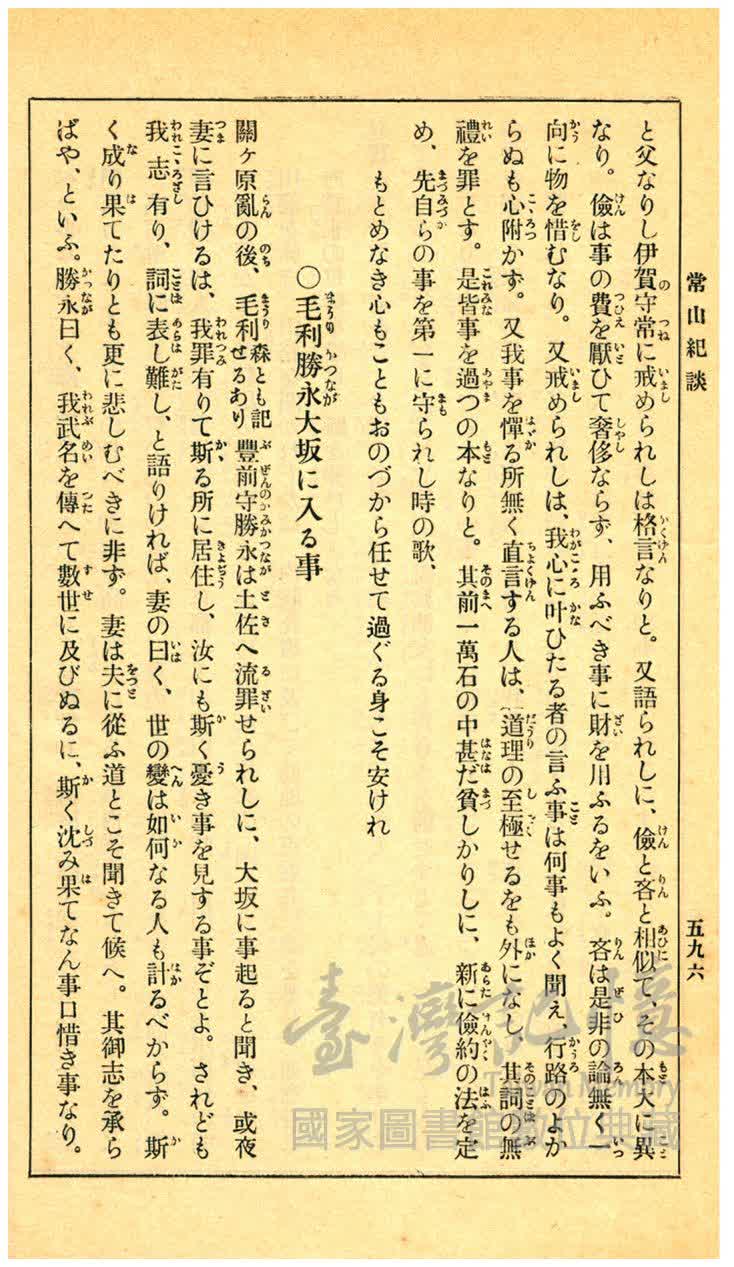 常山紀談
五九六
と父なりし伊賀守常に戒められしは格言なりと。又語られしに、儉と吝と相似て、その本大に異
なり。儉は事の費を厭ひて奢侈ならず、用ふべき事に財を用ふるをいふ。吝は是非の論無く一
向に物を惜むなり。又戒められしは、我心に叶ひたる者の言ふ事は何事もよく聞え、行路のよか
らぬも心附かず。又我事を憚る所無く直言する人は、道理の至極せるをも外になし、其詞の無
禮を罪とす。是皆事を過つの本なりと。其前一萬石の中甚だ貧しかりしに、新に儉約の法を定
め、先自らの事を第一に守られし時の歌、
もとめなき心もこともおのづから任せて過ぐる身こそ安けれ
〇毛利勝永大坂に入る事
關ヶ原亂の後、毛利森とも記せるあり豐前守勝永は土佐へ流罪せられしに、大坂に事起ると聞き、或夜
妻に言ひけるは、我罪有りて斯る所に居住し、汝にも斯く憂き事を見する事ぞとよ。されども
我志有り、詞に表し難し、と語りければ、妻の曰く、世の變は如何なる人も計るべからず。斯
く成り果てたりとも更に悲しむべきに非ず。妻は夫に從ふ道とこそ聞きて候へ。其御志を承ら
ばや、といふ。勝永曰く、我武名を傳へて數世に及びぬるに、斯く沈み果てなん事口惜き事なり。
臺灣記憶
Taiwan Memory
國家圖書館數位典藏